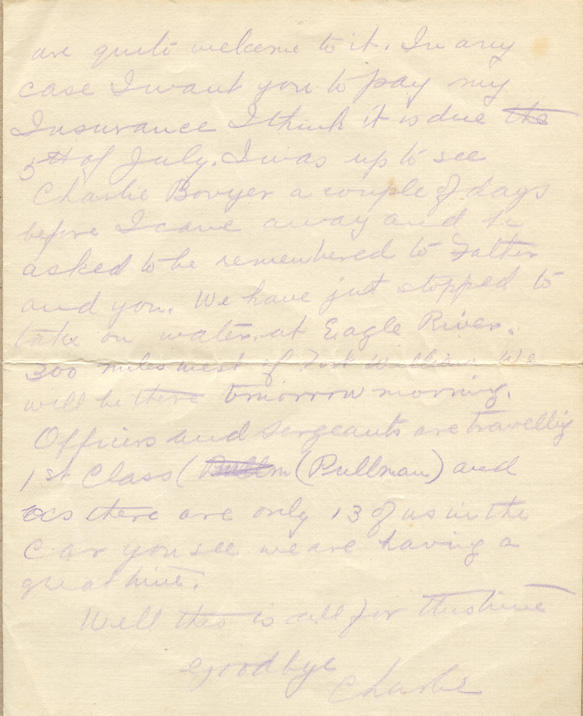 are quite welcome to it. In any
case I want you to pay my
Insurance I think it is due the
5th of July. I was up to see
Charlie Bovyer a couple of days
before I came away and he
asked to be remembered to Father
and you. We have just stopped to
take on water at Eagle River.
300 miles west of Fort William. We
will be there tomorrow morning.
Officers and Sergeants are travelling
1st Class (Pullman) and
as there are only 13 of us in the
Car you see we are having a
great time.
Well this is all for this time
Goodbye
Charlie